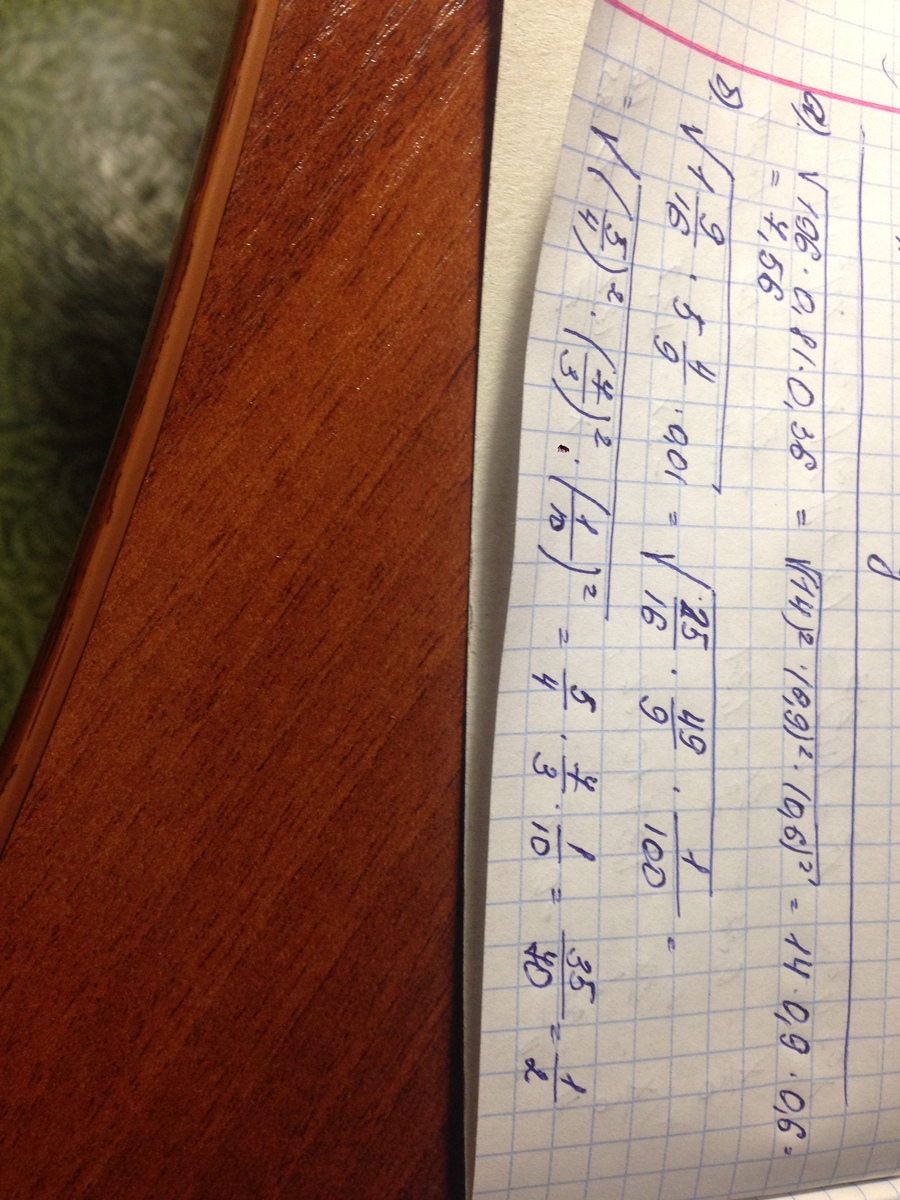 а) √196 · 0,81 · 0,36 = √(14)² · (0,9)² · (0,6)² = 14 · 0,9 · 0,6 =
= 7,56
б) √1 9/16 · 5 4/9 · 0,01 = √25/16 · 49/9 · 1/100 =
= √(5/4)² · (7/3)² · (1/10)² = 5/4 · 7/3 · 1/10 = 35/70 = 1/2